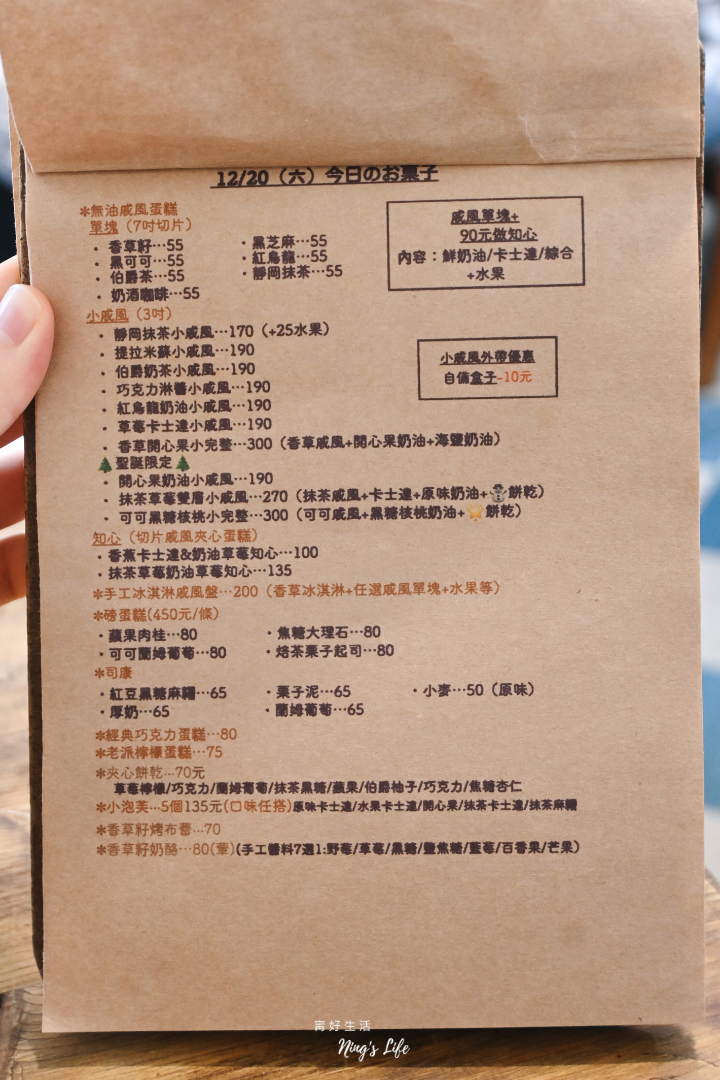 12/20（六）今日のお菓子
＊無油戚風蛋糕
單塊（7吋切片）
・香草籽…55 ・黑芝麻…55
・黑可可…55 ・紅烏龍…55
・伯爵茶…55 ・靜岡抹茶…55
・奶酒咖啡…55
戚風單塊+
90元做知心
內容：鮮奶油/卡士達/綜合
+水果
小戚風（3吋）
・靜岡抹茶小戚風…170（+25水果）
・提拉米蘇小戚風…190
・伯爵奶茶小戚風…190
・巧克力淋醬小戚風…190
・紅烏龍奶油小戚風…190
・草莓卡士達小戚風…190
・香草開心果小完整…300（香草戚風+開心果奶油+海鹽奶油）
小戚風外帶優惠
自備盒子-10元
🎄聖誕限定🎄
・開心果奶油小戚風…190
・抹茶草莓雙層小戚風…270（抹茶戚風+卡士達+原味奶油+⛄餅乾）
・可可黑糖核桃小完整…300（可可戚風+黑糖核桃奶油+餅乾）
知心（切片戚風夾心蛋糕）
・香蕉卡士達&奶油草莓知心…100
・抹茶草莓奶油草莓知心…135
＊手工冰淇淋戚風盤…200（香草冰淇淋+任選戚風單塊+水果等）
＊磅蛋糕(450元/條)
・蘋果肉桂…80 ・焦糖大理石…80
・可可蘭姆葡萄…80 ・焙茶栗子起司…80
＊司康
・紅豆黑糖麻糬…65 ・栗子泥…65 ・小麥…50（原味）
・厚奶…65 ・蘭姆葡萄…65
＊經典巧克力蛋糕…80
＊老派檸檬蛋糕…75
＊夾心餅乾…70元
草莓檸檬/巧克力/蘭姆葡萄/抹茶黑糖/蘋果/伯爵柚子/巧克力/焦糖杏仁
＊小泡芙…5個135元(口味任搭)原味卡士達/水果卡士達/開心果/抹茶卡士達/抹茶麻糬
＊香草籽烤布蕾…70
＊香草籽奶酪…80(葷)(手工醬料7選1:野莓/草莓/黑糖/鹽焦糖/藍莓/百香果/芒果)
甯好生活
Ning's Life